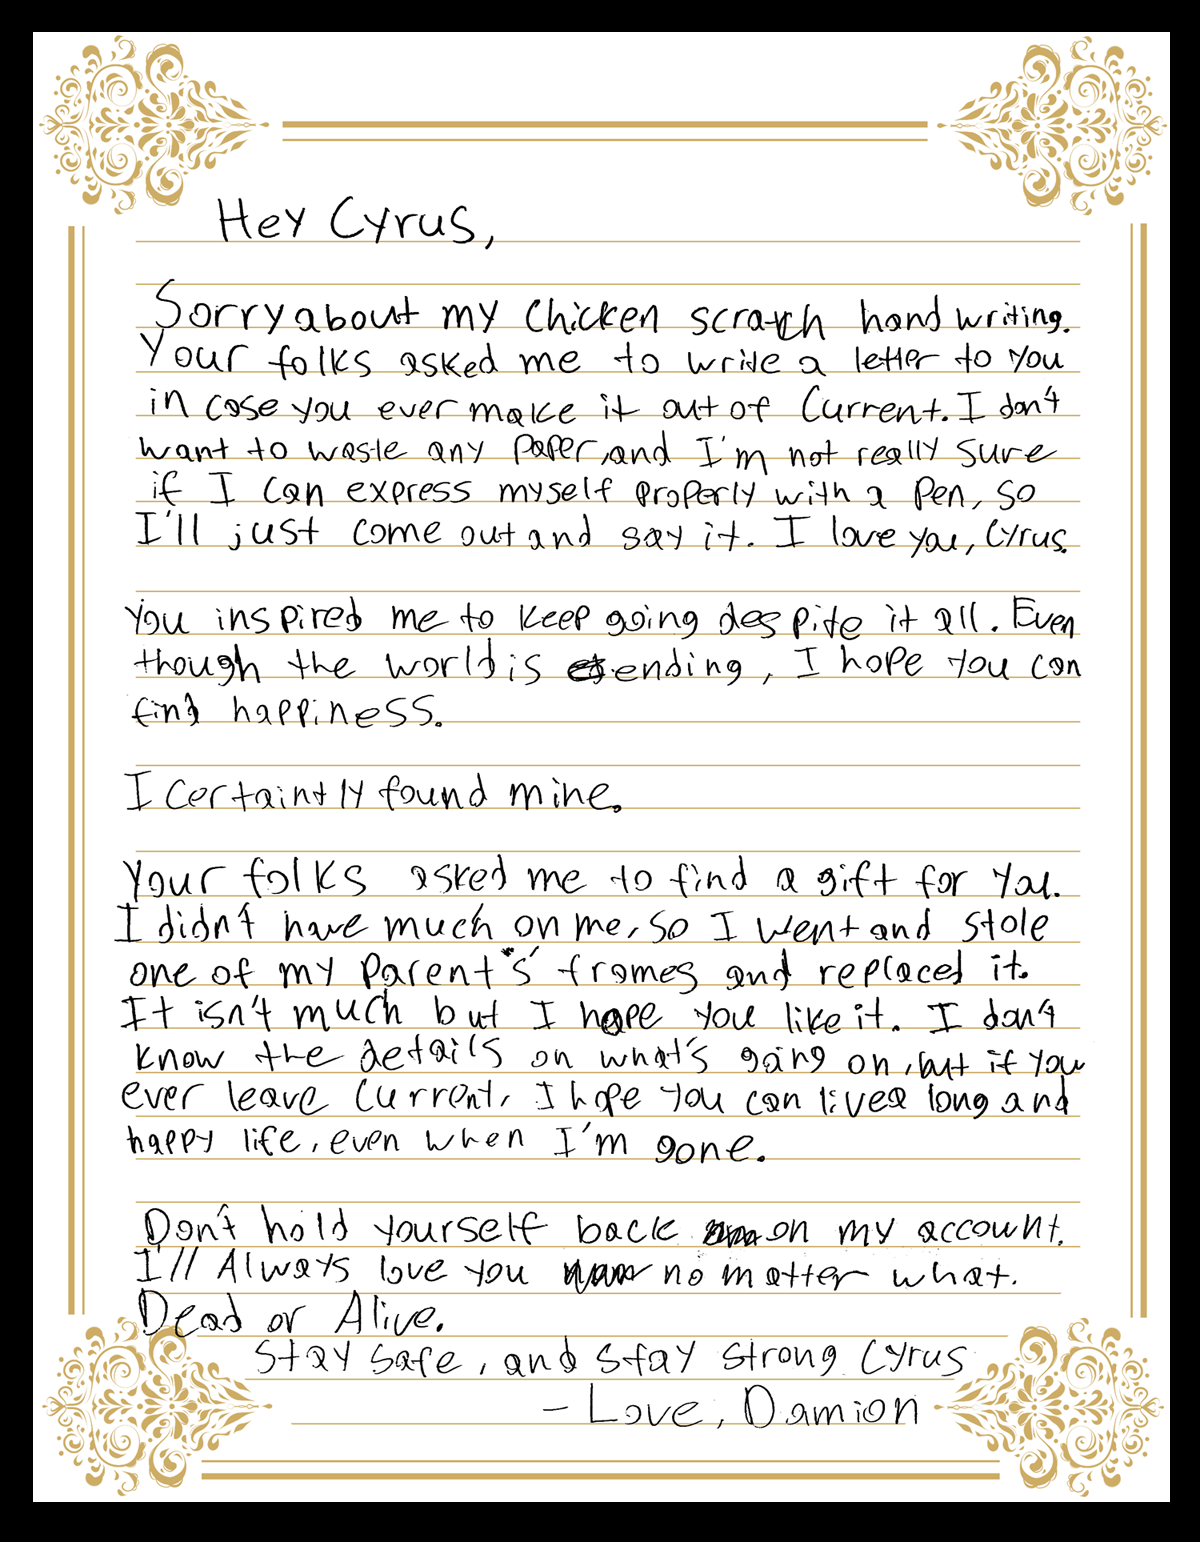 Hey Cyrus,
Sorry about my chicken scratch hand writing.
Your folks asked me to write a letter to you
in case you ever make it out of Current. I don't
want to waste any paper, and I'm not really sure
if I can express myself properly with a pen, so
I'll just come out and say it. I love you, Cyrus.
You inspired me to keep going despite it all. Even
though the world is ending, I hope you can
find happiness.
I certaintly found mine.
Your folks asked me to find a gift for you.
I didn't have much on me, so I went and stole
one of my parent's frames and replaced it.
It isn't much but I hope you like it. I don't
know the details on what's going on, but if you
ever leave Current, I hope you can live a long and
happy life, even when I'm gone.
Don't hold yourself back on my account.
I'll Always love you no matter what.
Dead or Alive.
Stay safe, and stay strong Cyrus
- Love, Damion